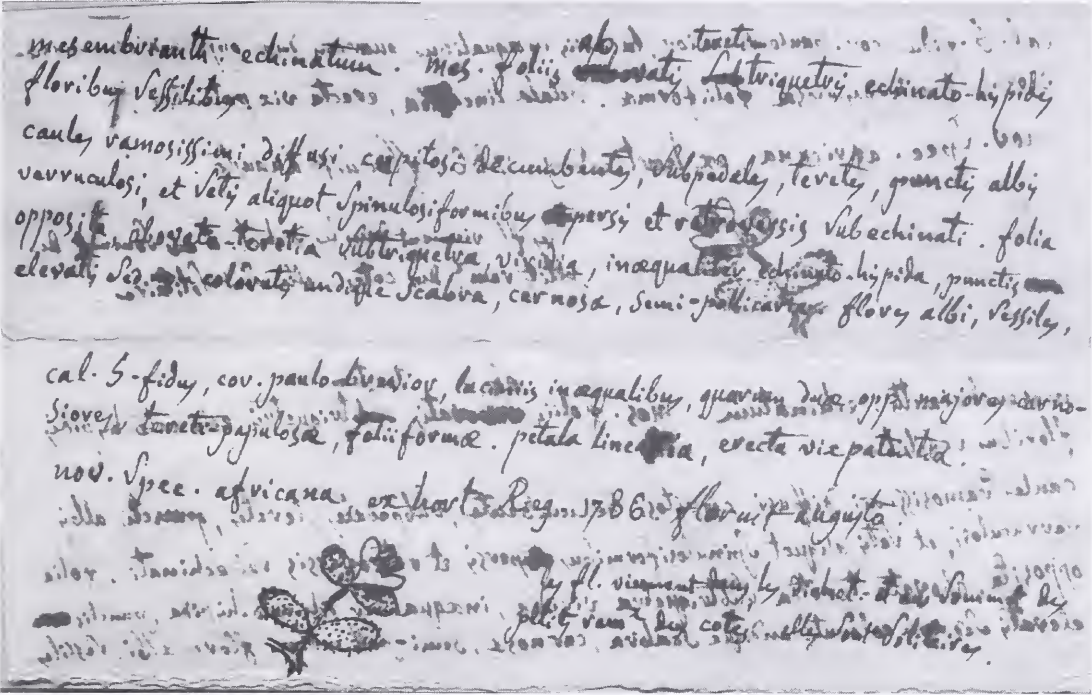 mesembrianth echinatum. mes. foliis obovatis subtriquetris echinato-hispidis
floribus sessilibus.
caules ramosissimi, diffusi, cespitosi decumbentes, subpedales, teretes, punctis albis
verruculosi, et setis aliquot spinulosiformibus aspersis et retroversis subechinati. folia
opposita obovata-teretia subtriquetra, viridia, inæqualiter echinato-hispida, punctis
elevatis sed colôratis undique scabra, carnosa, semi-pollicaria flores albi, sessiles,
cal. 5-fidus, cor. paulo brevior, laciniis inæqualibus, quarum duæ opp. majores carno-
siores tereti-papulosæ, foliiformæ. petala linearia, erecta vix patentia.
nov. spec. africana. ex hort. Reg. 1786 floruit augusto
les fl. viennent dans les dichot. et au sommet des
petits ram. des cotés elles sont solitaires.